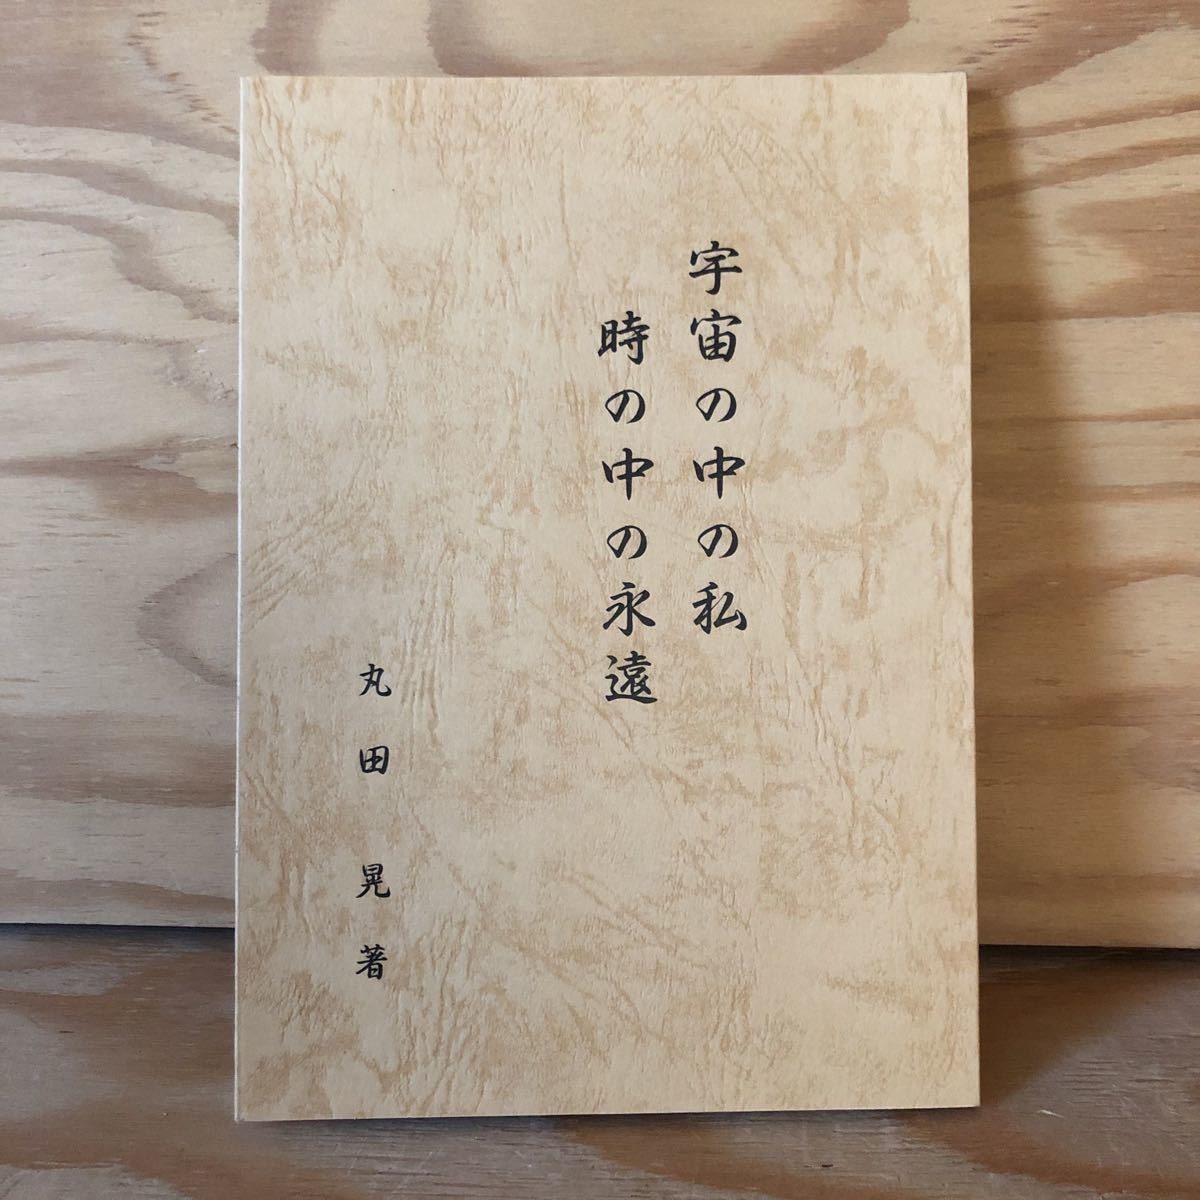 宇宙の中の私
時の中の永遠
丸田晃著